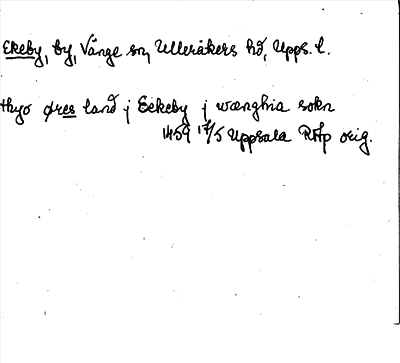 Ekeby, by, Vänge sn, Ulleråkers hd, Upps. l.
thyo øres land j Eekeby j wænghia sokn
1459 17/5 Uppsala RAp orig.